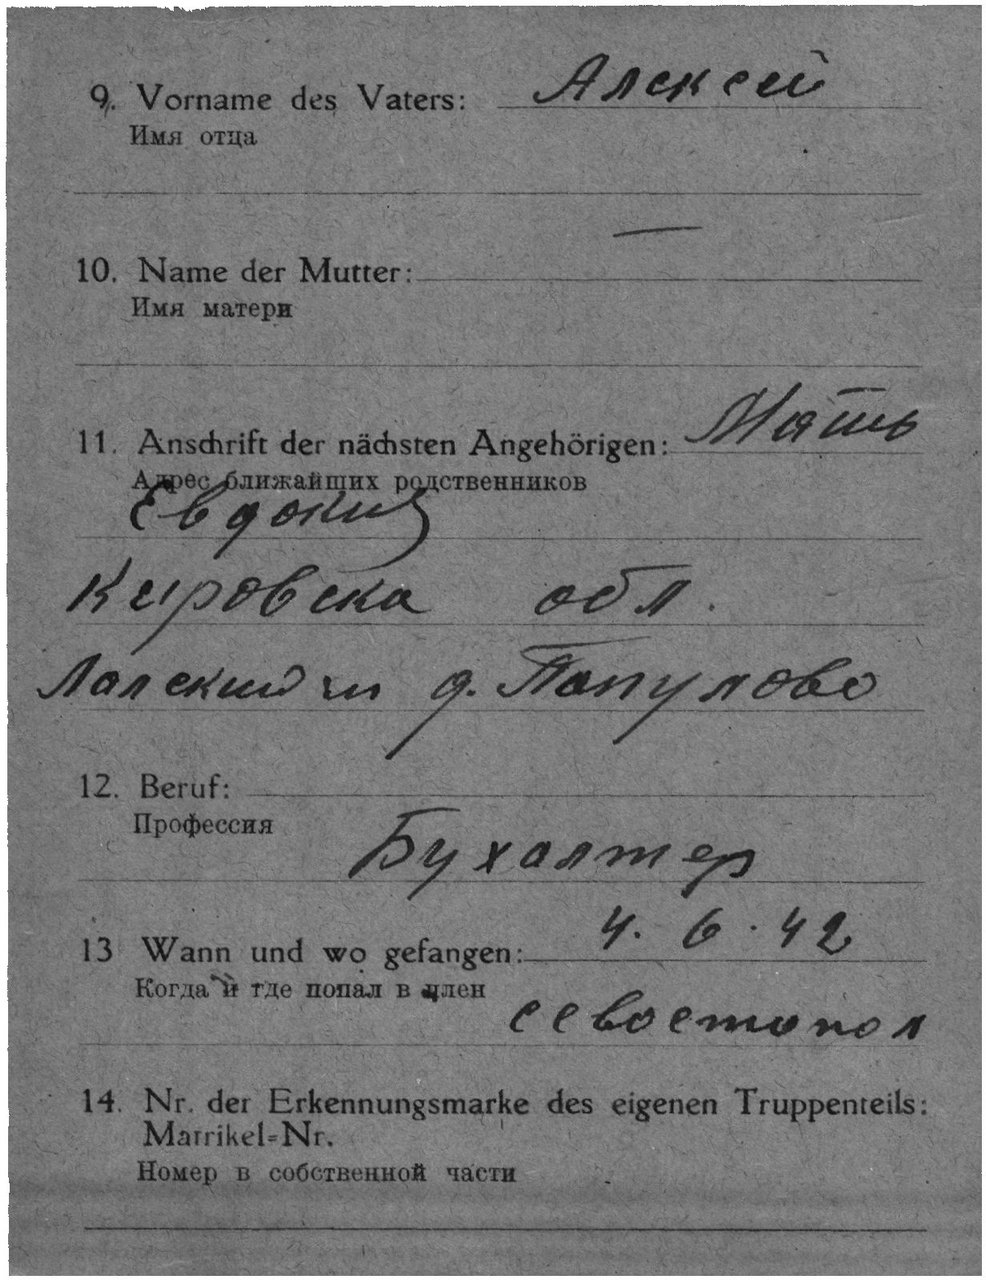 9. Vorname des Vaters: Алексей
Имя отца
—
10. Name der Mutter:
Имя матери
11. Anschrift der nächsten Angehörigen: Мать
Адрес ближайших родственников
Евдокия
Кировска обл.
Лалский д. Папулово
12. Beruf:
Профессия
Бухалтер
13 Wann und wo gefangen: 4. 6. 42
Когда и где попал в плен
севостопол
14. Nr. der Erkennungsmarke des eigenen Truppenteils:
Matrikel=Nr.
Номер в собственной части